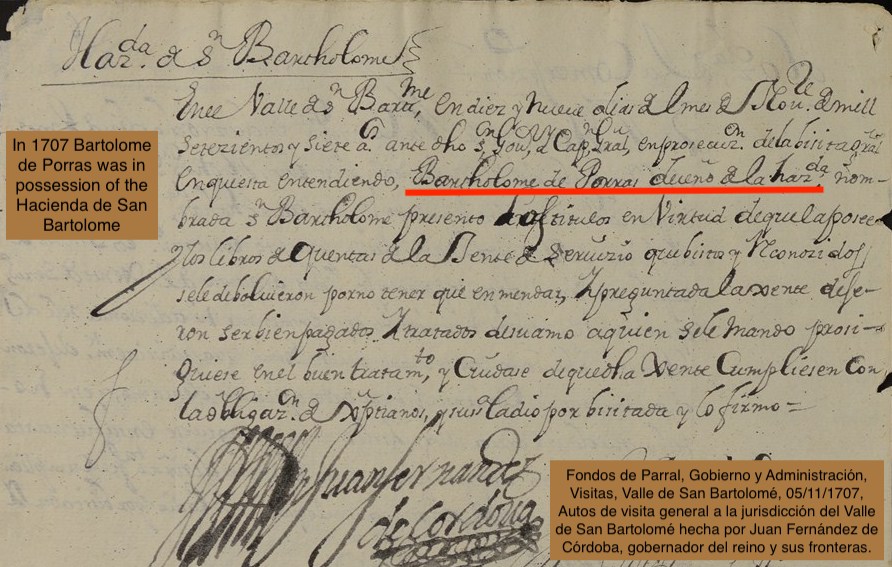 Haz.da de Sn Bartholome
En el Valle de Sn Bartme, en diez y nueve dias del mes de Nove de mill
setezientos y siete as ante dho sr Gour y Capn Gral, en prosecuzn de la bisita gral
en questa entendiendo, Bartholome de Porras dueño de la hazda nom-
brada sn Bartholome presento los titulos en Virtud de que la posee
y los libros de quentas de la Jente de seruizio que bistos y Reconozidos
se le debolvieron por no tener que enmendar, y preguntada la xente dije-
ron ser bien pagados y tratados de su amo a quien se le mando prosi-
guiese en el buen tratamto, y Cuidase de que dha xente Cumpliesen con
la obligazn de xptianos, y sus la dio por bisitada y lo firmo=
Juan Fernandez
de Cordoua
In 1707 Bartolome
de Porras was in
possession of the
Hacienda de San
Bartolome
Fondos de Parral, Gobierno y Administración,
Visitas, Valle de San Bartolomé, 05/11/1707,
Autos de visita general a la jurisdicción del Valle
de San Bartolomé hecha por Juan Fernández de
Córdoba, gobernador del reino y sus fronteras.